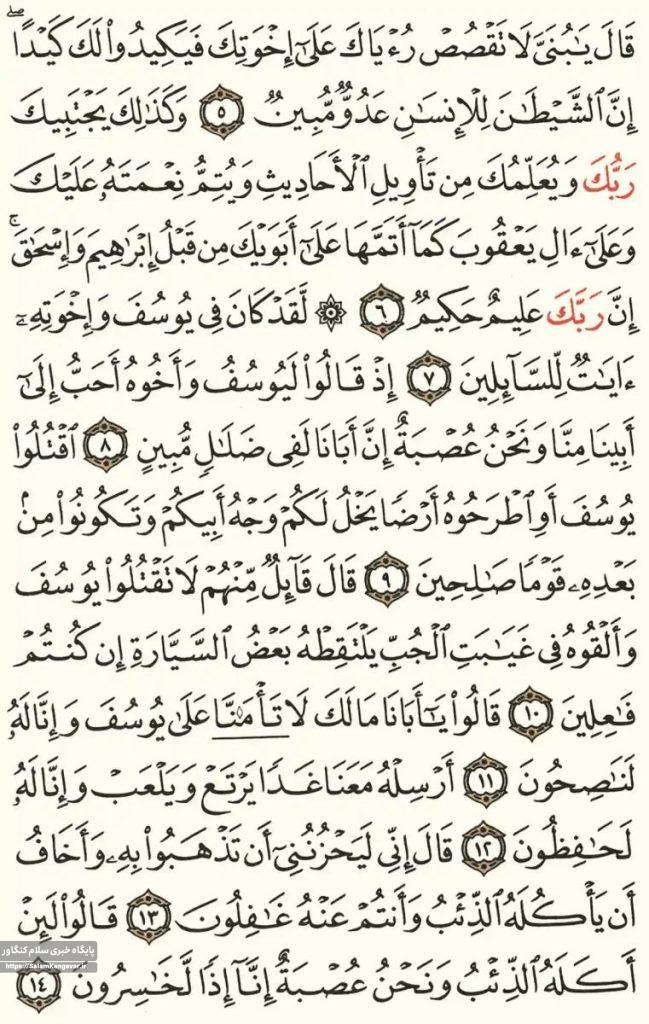 قَالَ يَٰبُنَيَّ لَا تَقۡصُصۡ رُءۡيَاكَ عَلَىٰٓ إِخۡوَتِكَ فَيَكِيدُواْ لَكَ كَيۡدًاۖ
إِنَّ ٱلشَّيۡطَٰنَ لِلۡإِنسَٰنِ عَدُوّٞ مُّبِينٞ ٥ وَكَذَٰلِكَ يَجۡتَبِيكَ
رَبُّكَ وَيُعَلِّمُكَ مِن تَأۡوِيلِ ٱلۡأَحَادِيثِ وَيُتِمُّ نِعۡمَتَهُۥ عَلَيۡكَ
وَعَلَىٰٓ ءَالِ يَعۡقُوبَ كَمَآ أَتَمَّهَا عَلَىٰٓ أَبَوَيۡكَ مِن قَبۡلُ إِبۡرَٰهِيمَ وَإِسۡحَٰقَۚ
إِنَّ رَبَّكَ عَلِيمٌ حَكِيمٞ ٦ ۞ لَّقَدۡ كَانَ فِي يُوسُفَ وَإِخۡوَتِهِۦٓ
ءَايَٰتٞ لِّلسَّآئِلِينَ ٧ إِذۡ قَالُواْ لَيُوسُفُ وَأَخُوهُ أَحَبُّ إِلَىٰٓ
أَبِينَا مِنَّا وَنَحۡنُ عُصۡبَةٌ إِنَّ أَبَانَا لَفِي ضَلَٰلٖ مُّبِينٍ ٨ ٱقۡتُلُواْ
يُوسُفَ أَوِ ٱطۡرَحُوهُ أَرۡضٗا يَخۡلُ لَكُمۡ وَجۡهُ أَبِيكُمۡ وَتَكُونُواْ مِنۢ
بَعۡدِهِۦ قَوۡمٗا صَٰلِحِينَ ٩ قَالَ قَآئِلٞ مِّنۡهُمۡ لَا تَقۡتُلُواْ يُوسُفَ
وَأَلۡقُوهُ فِي غَيَٰبَتِ ٱلۡجُبِّ يَلۡتَقِطۡهُ بَعۡضُ ٱلسَّيَّارَةِ إِن كُنتُمۡ
فَٰعِلِينَ ١٠ قَالُواْ يَٰٓأَبَانَا مَا لَكَ لَا تَأۡمَ۬نَّا عَلَىٰ يُوسُفَ وَإِنَّا لَهُۥ
لَنَٰصِحُونَ ١١ أَرۡسِلۡهُ مَعَنَا غَدٗا يَرۡتَعۡ وَيَلۡعَبۡ وَإِنَّا لَهُۥ
لَحَٰفِظُونَ ١٢ قَالَ إِنِّي لَيَحۡزُنُنِيٓ أَن تَذۡهَبُواْ بِهِۦ وَأَخَافُ
أَن يَأۡكُلَهُ ٱلذِّئۡبُ وَأَنتُمۡ عَنۡهُ غَٰفِلُونَ ١٣ قَالُواْ لَئِنۡ
أَكَلَهُ ٱلذِّئۡبُ وَنَحۡنُ عُصۡبَةٌ إِنَّآ إِذٗا لَّخَٰسِرُونَ ١٤
پایگاه خبری سلام کنگاور
https://SalamKangavar.ir